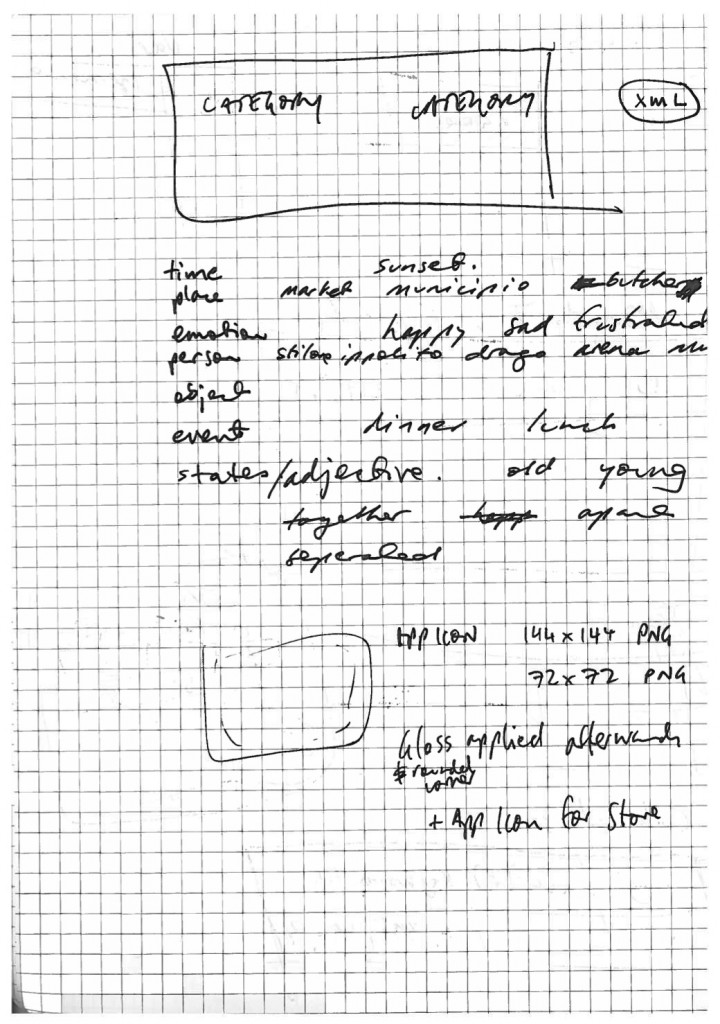 CATEGORY CATEGORY XML
time sunset.
place market municipio butcher
emotion happy sad frustrated
person ippolito drago arena
object
event dinner lunch
states/adjective. old young
together apart
seperated
APP ICON 144x144 PNG
72x72 PNG
Gloss applied afterwards
& rounded
corner
+ App Icon for Store